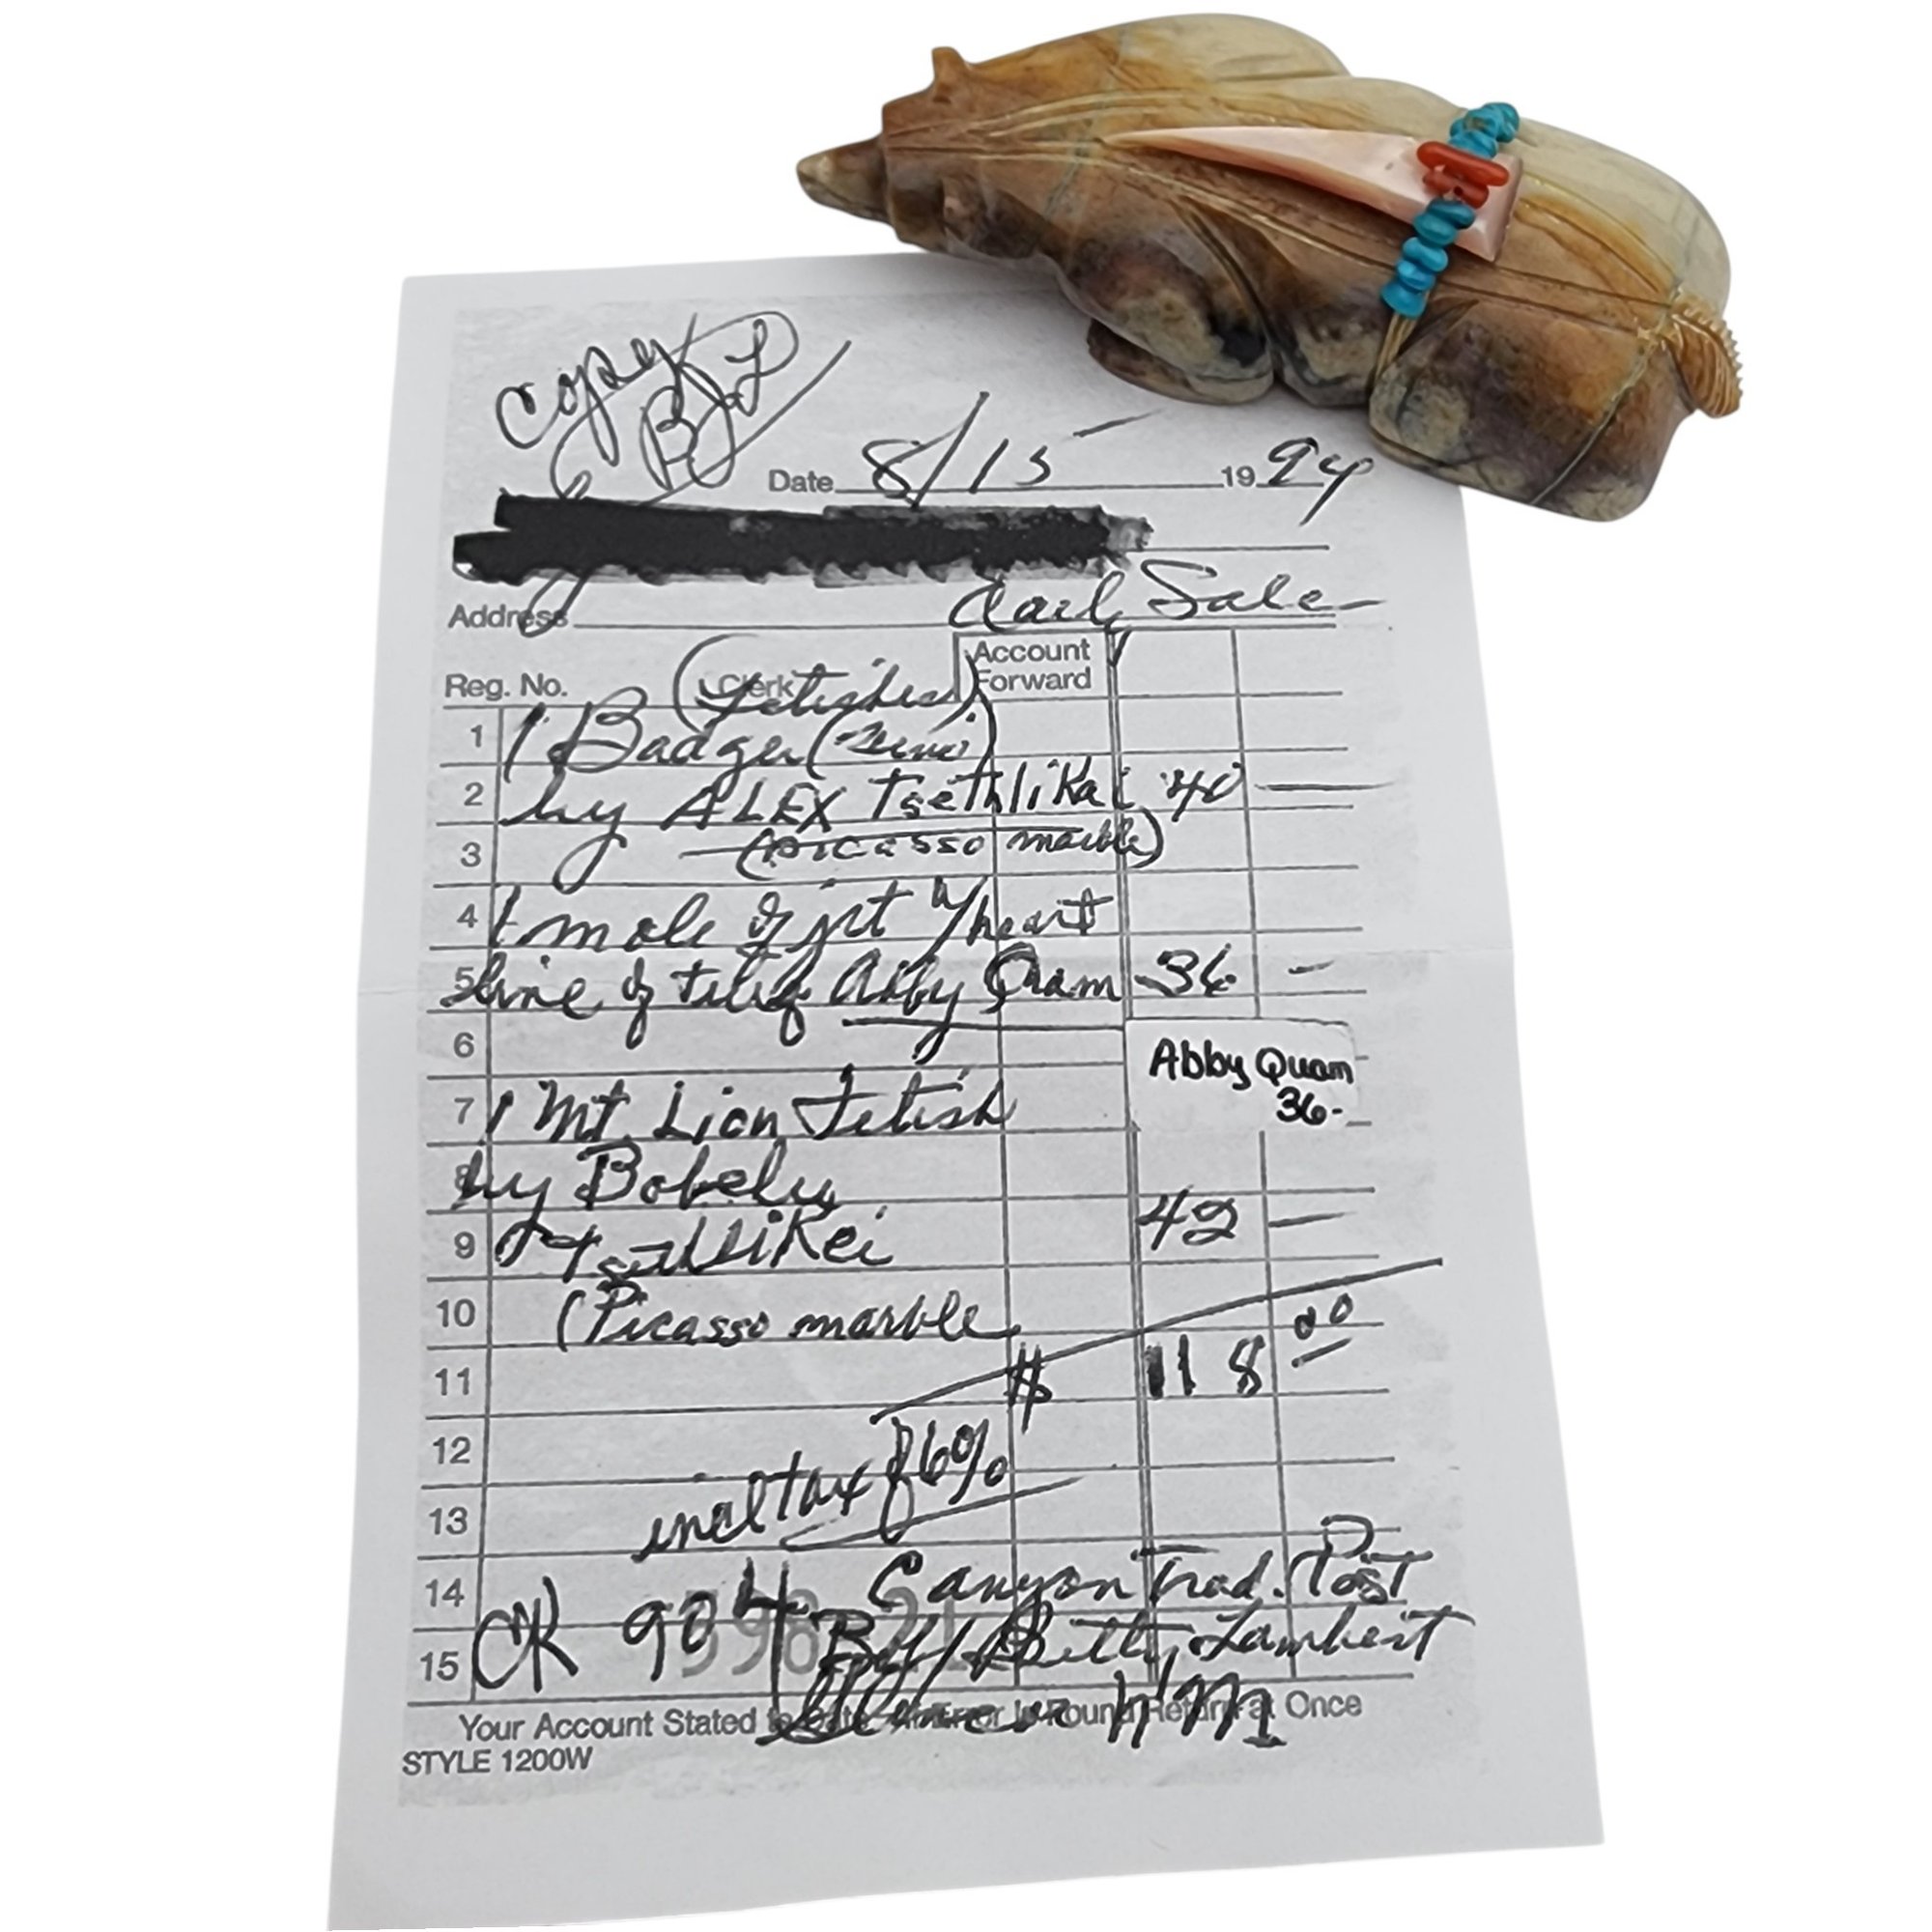 Copy
BJL
Date 8/15 - 1994
Address Sale
Reg. No. Clerk (Fetishes) Account Forward
1 1 Badger (Zuni)
2 by ALEX Tsethlikai 40 —
3 (picasso marble)
4 1 mole of jet w/heart
5 line of Abby Quam 36 -
6 Abby Quam
36-
7 1 Mt. Lion Fetish
8 by Bobelu
9 Tsethlikei 42 —
10 (Picasso marble
11 $ 118 00
12
13 incl tax of 6%
14 Canyon Trad. Post
15 CK 904 Bill/Betty Lambert
Your Account Stated to Date. If Error Is Found Return at Once
NM
STYLE 1200W